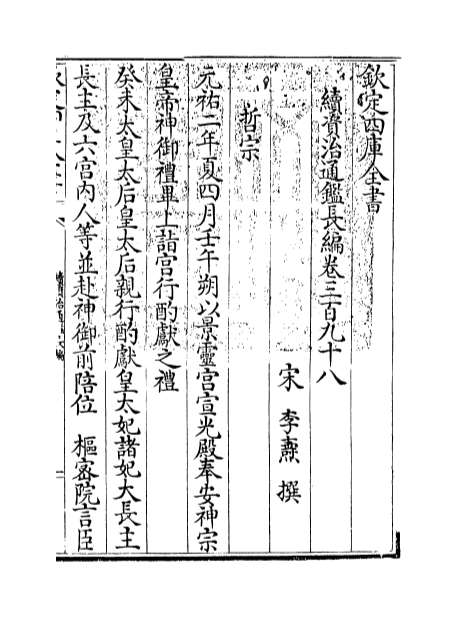 欽定四庫全書
續資治通鑑長編卷三百九十八
宋 李燾 撰
哲宗
元祐二年夏四月壬午朔以景靈宮宣光殿奉安神宗
皇帝神御禮畢上詣宮行酌獻之禮
癸未太皇太后皇太后親行酌獻皇太妃諸妃大長主
長主及六宮內人等並赴神御前陪位 樞密院言臣